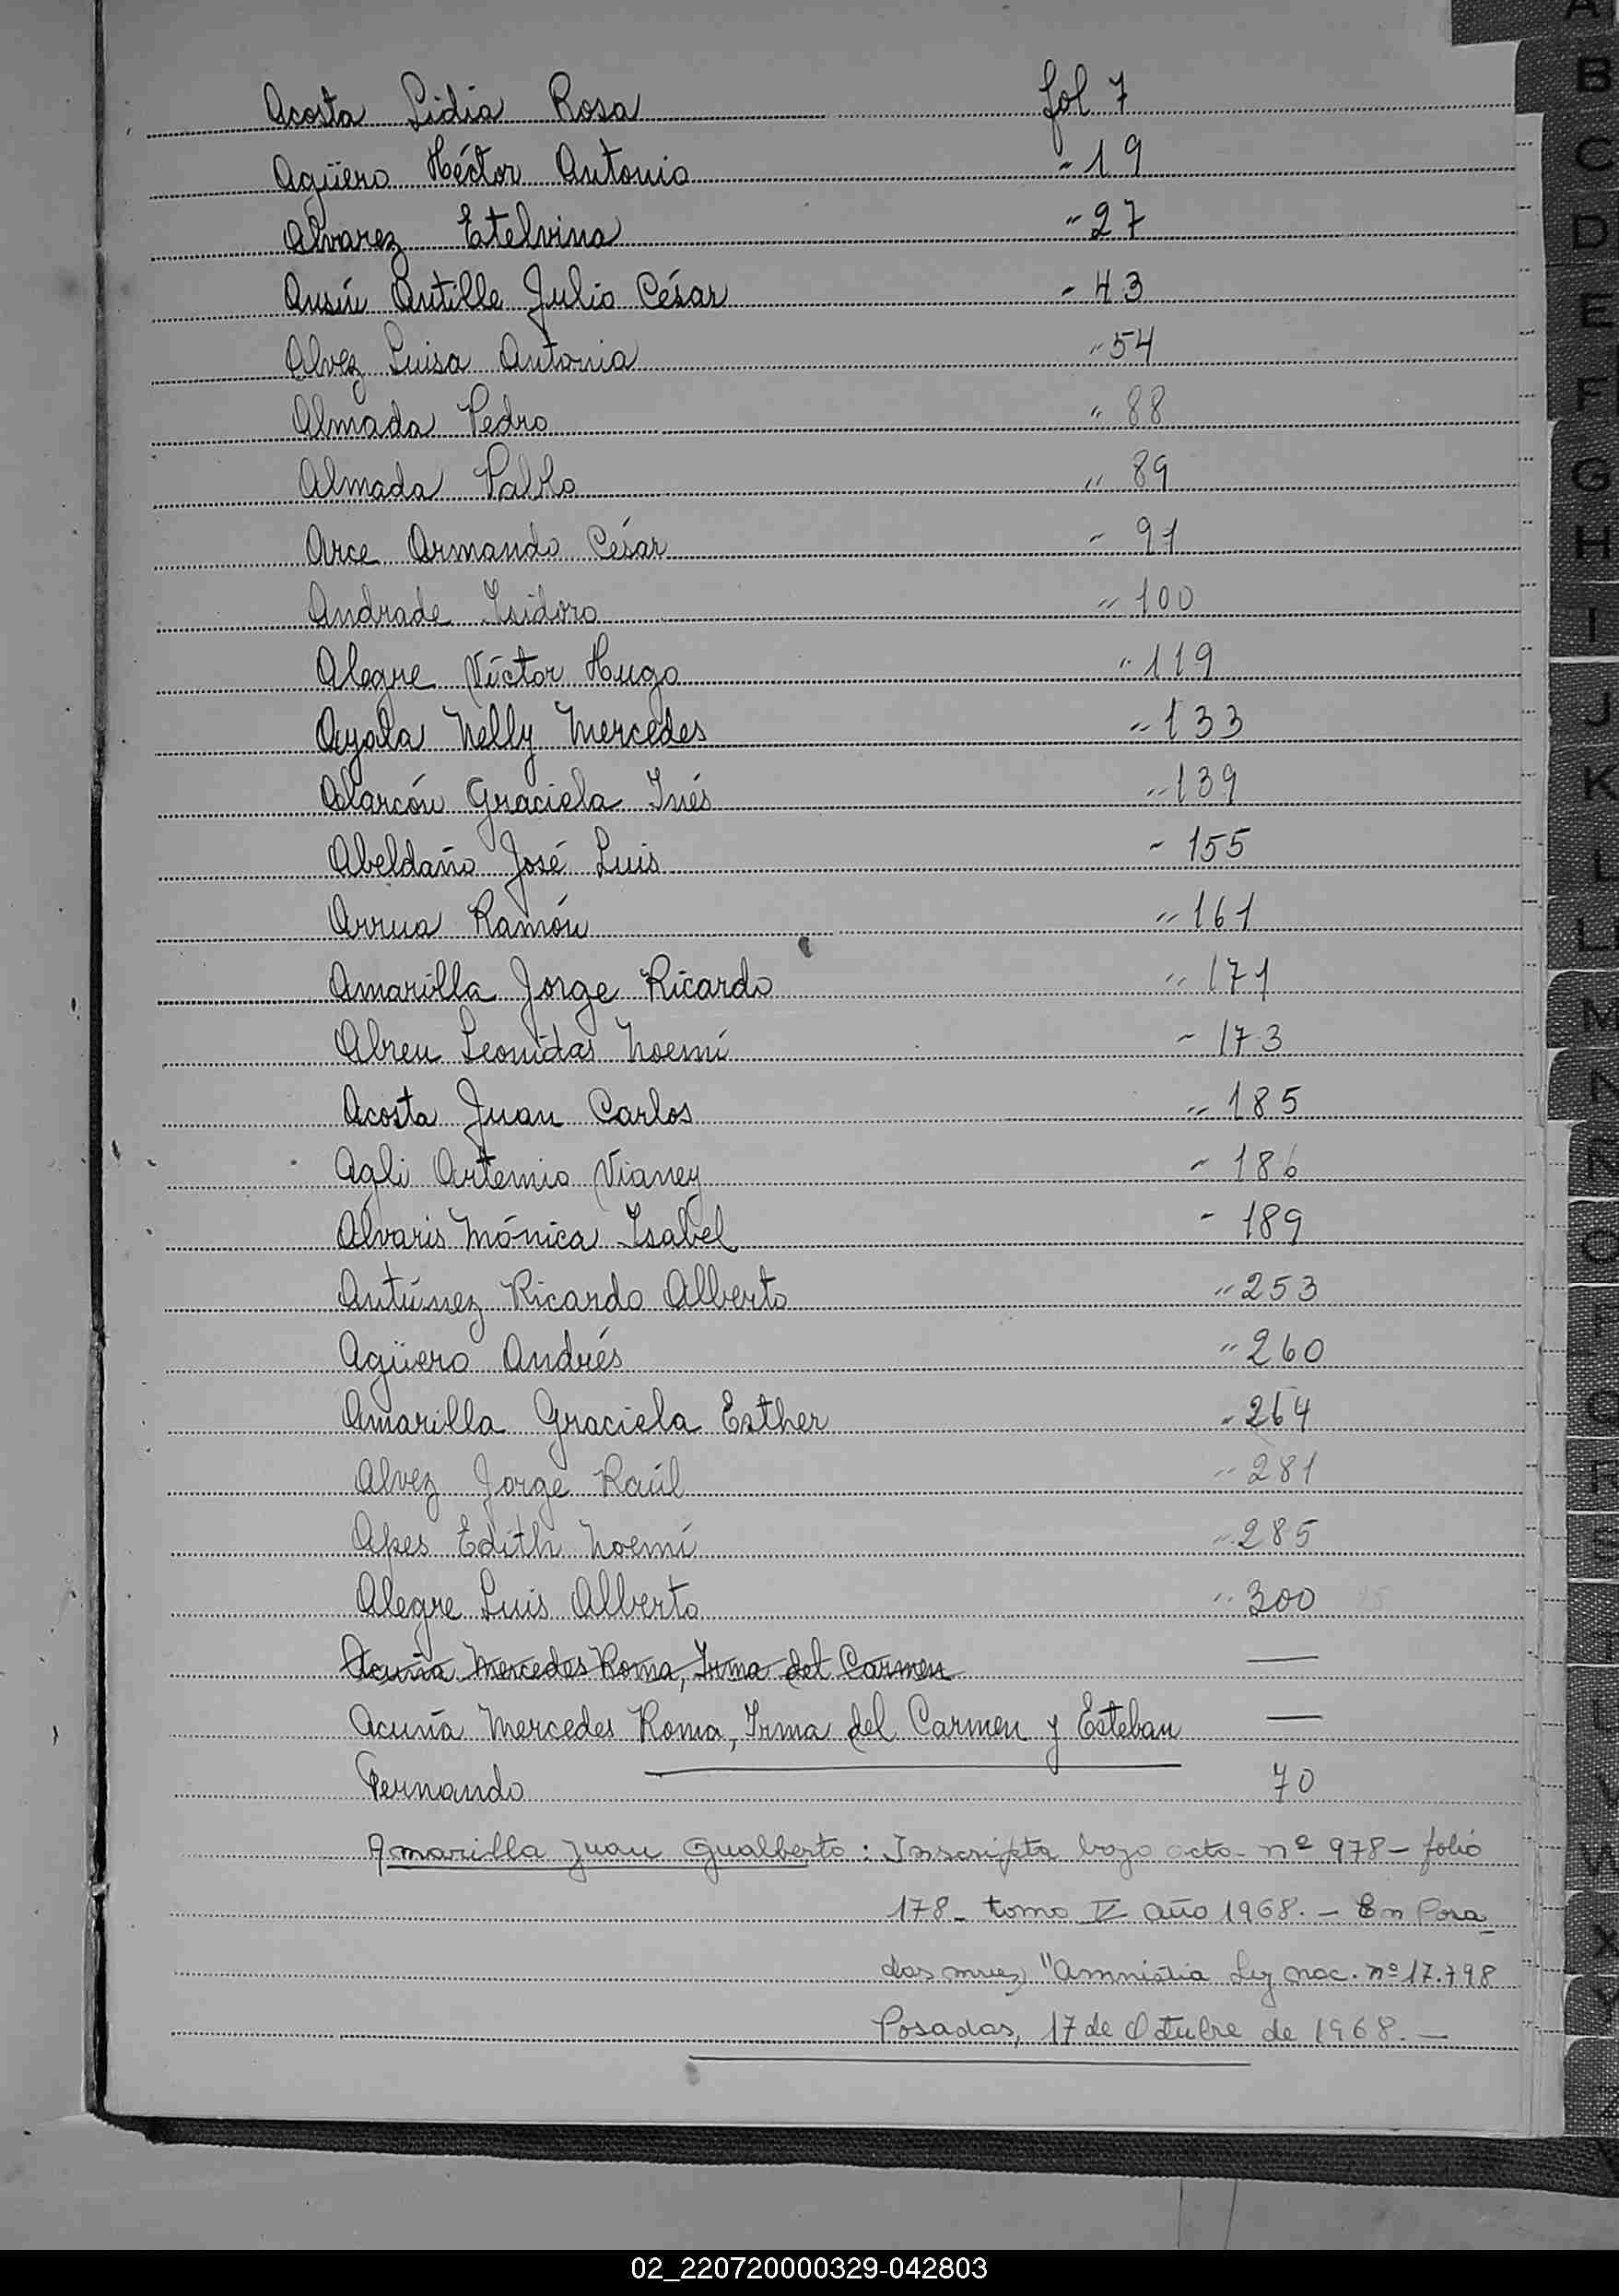 Acosta Lidia Rosa fol 7
Agüero Héctor Antonio " 19
Alvarez Etelvina " 27
Ausín Antille Julio César " 43
Alvez Luisa Antonia " 54
Almada Pedro " 88
Almada Pablo " 89
Arce Armando César " 91
Andrade Isidoro " 100
Alegre Víctor Hugo " 119
Ayala Nelly Mercedes " 133
Alarcón Graciela Inés " 139
Abeldaño José Luis " 155
Arrua Ramón " 161
Amarilla Jorge Ricardo " 171
Abreu Leonidas Noemí " 173
Acosta Juan Carlos " 185
Agli Artemio Vianey " 186
Alvaris Mónica Isabel " 189
Antúnez Ricardo Alberto " 253
Agüero Andrés " 260
Amarilla Graciela Esther " 264
Alvez Jorge Raúl " 281
Apes Edith Noemí " 285
Alegre Luis Alberto " 300
Acuña Mercedes Roma, Irma del Carmen —
Acuña Mercedes Roma, Irma del Carmen y Esteban —
Fernando 70
Amarilla Juan Gualberto: Inscripta bajo acta nº 978 - folio
178 - tomo V año 1968. - En Posa-
das mnes, "Amnistia Ley nac. nº 17.798
Posadas, 17 de Octubre de 1968. —
A
B
C
D
E
F
G
H
I
J
K
L
LL
M
N
Ñ
O
P
Q
R
S
T
U
V
W
X
Y
02_220720000329-042803